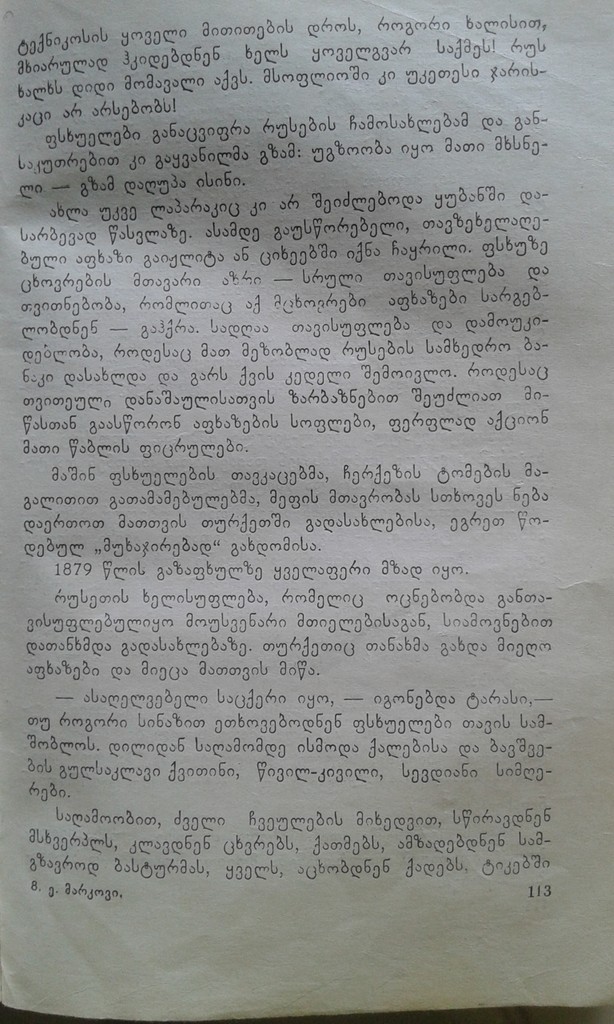 ტექნიკოსის ყოველი მითითების დროს, როგორი ხალისით,
მხიარულად ჰკიდებდნენ ხელს ყოველგვარ საქმეს! რუს
ხალხს დიდი მომავალი აქვს. მსოფლიოში კი უკეთესი ჯარის-
კაცი არ არსებობს!
ფსხუელები განაცვიფრა რუსების ჩამოსახლებამ და გან-
საკუთრებით კი გაყვანილმა გზამ: უგზოობა იყო მათი მხსნე-
ლი — გზამ დაღუპა ისინი.
ახლა უკვე ლაპარაკიც კი არ შეიძლებოდა ყუბანში და-
სარბევად წასვლაზე. ასამდე გაუსწორებელი, თავზეხელაღე-
ბული აფხაზი გაიჟლიტა ან ციხეებში იქნა ჩაყრილი. ფსხუზე
ცხოვრების მთავარი აზრი — სრული თავისუფლება და
თვითნებობა, რომლითაც აქ მცხოვრები აფხაზები სარგებ-
ლობდნენ — გაჰქრა. სადღაა თავისუფლება და დამოუკი-
დებლობა, როდესაც მათ მეზობლად რუსების სამხედრო ბა-
ნაკი დასახლდა და გარს ქვის კედელი შემოივლო. როდესაც
თვითეული დანაშაულისათვის ზარბაზნებით შეუძლიათ მი-
წასთან გაასწორონ აფხაზების სოფლები, ფერფლად აქციონ
მათი წაბლის ფიცრულები.
მაშინ ფსხუელების თავკაცებმა, ჩერქეზის ტომების მა-
გალითით გათამამებულებმა, მეფის მთავრობას სთხოვეს ნება
დაერთოთ მათთვის თურქეთში გადასახლებისა, ეგრეთ წო-
დებულ „მუხაჯირებად“ გახდომისა.
1879 წლის გაზაფხულზე ყველაფერი მზად იყო.
რუსეთის ხელისუფლება, რომელიც ოცნებობდა განთა-
ვისუფლებულიყო მოუსვენარი მთიელებისაგან, სიამოვნებით
დათანხმდა გადასახლებაზე. თურქეთიც თანახმა გახდა მიეღო
აფხაზები და მიეცა მათთვის მიწა.
— ასაღელვებელი საცქერი იყო, — იგონებდა ტარასი,—
თუ როგორი სინაზით ეთხოვებოდნენ ფსხუელები თავის სამ-
შობლოს. დილიდან საღამომდე ისმოდა ქალებისა და ბავშვე-
ბის გულსაკლავი ქვითინი, წივილ-კივილი, სევდიანი სიმღე-
რები.
საღამოობით, ძველი ჩვეულების მიხედვით, სწირავდნენ
მსხვერპლს, კლავდნენ ცხვრებს, ქათმებს, ამზადებდნენ სამ-
გზავროდ ბასტურმას, ყველს, აცხობდნენ ქადებს, ტიკებში
8. ე. მარკოვი, 113